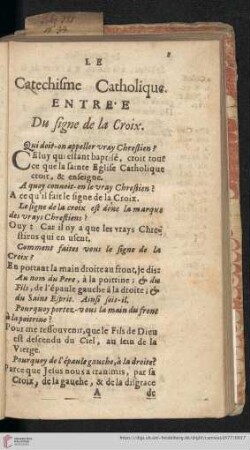 LE
Catechisme Catholique.
ENTRE'E
Du signe de la Croix.
Qui doit-on appeller vray Chrestien ?
CEluy qui estant baptisé, croit tout
ce que la sainte Eglise Catholique
croit, & enseigne.
A quoy connoit-on le vray Chrestien ?
A ce qu'il fait le signe de la Croix.
Le signe de la croix est donc la marque
des vrays Chrestiens ?
Ouy : Car il n'y a que les vrays Chre-
stiens qui en usent.
Comment faites vous le signe de la
Croix ?
En portant la main droite au front, je dis
Au nom du Pere, à la poitrine ; & du
Fils, de l'épaule gauche à la droite ; &
du Saint Esprit. Ainsi soit-il.
Pourquoy portez-vous la main du front
à la poitrine ?
Pour me ressouvenir, que le Fils de Dieu
est descendu du Ciel, au sein de la
Vierge.
Pourquoy de l'épaule gauche, à la droite?
Parce que Jesus nous a transmis, par sa
Croix, de la gauche, & de la disgrace
A de